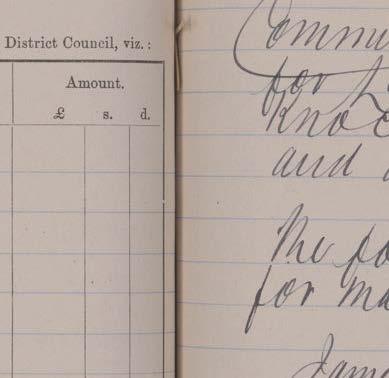 District Council, viz. :
Amount.
£ s. d.
Commu
for
Kno
and
The fo
for ma
Jam